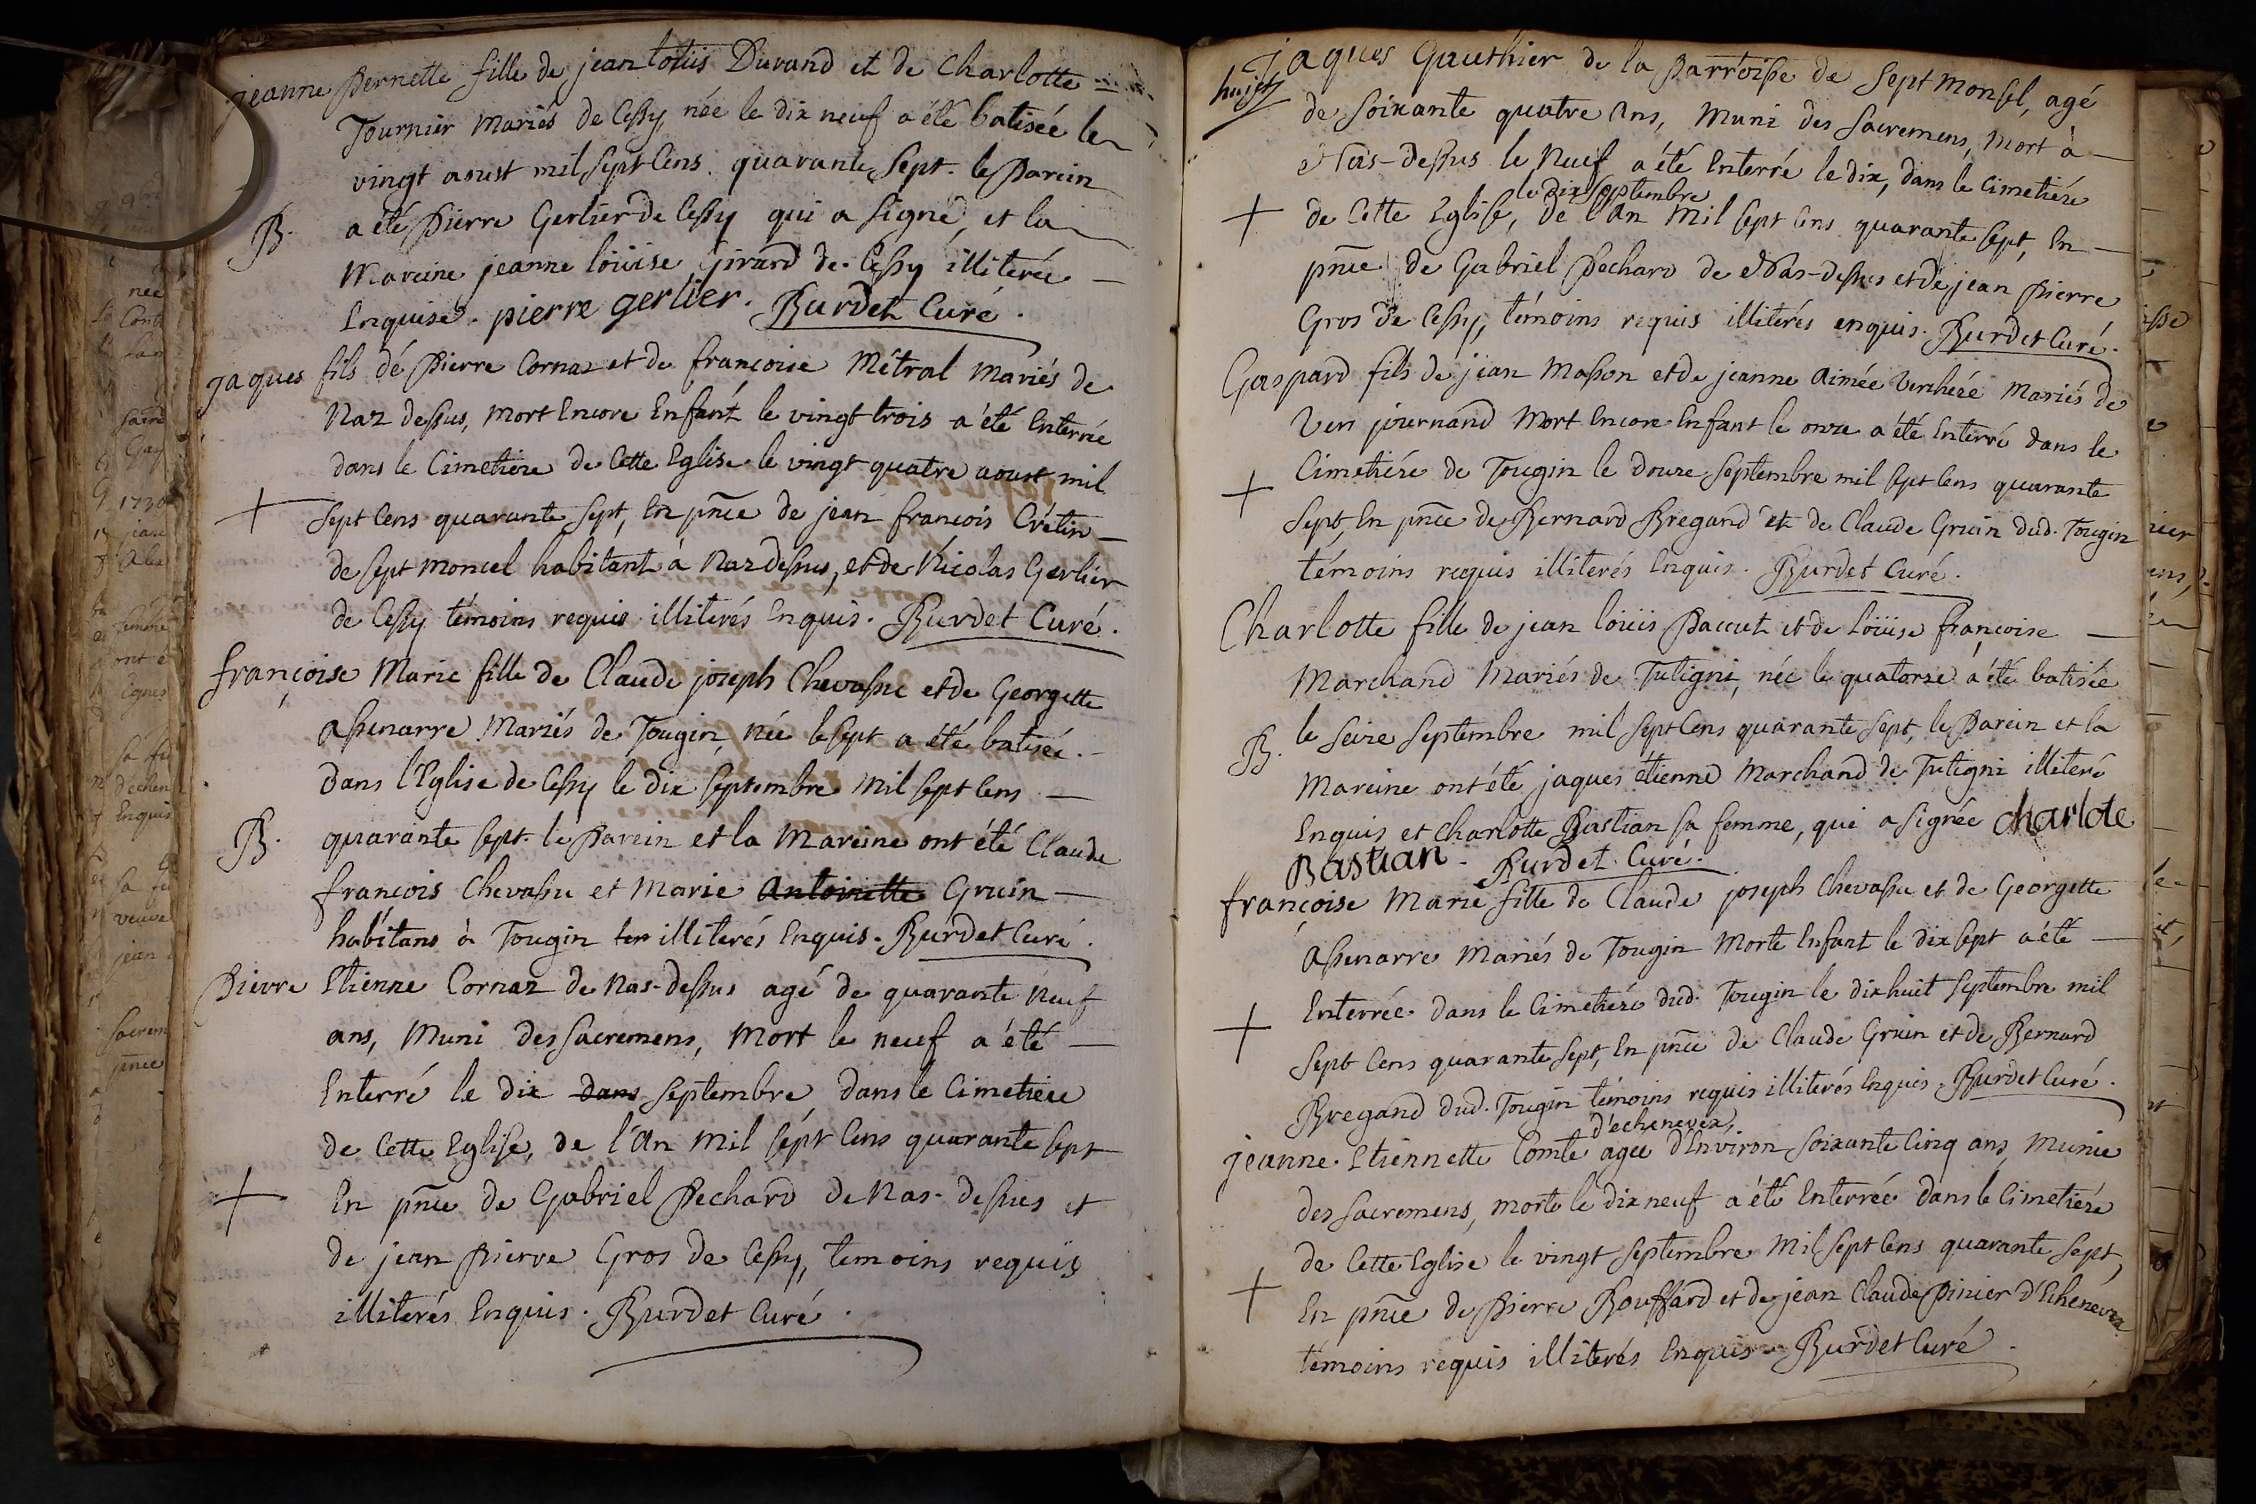 jeanne Pernette fille de jean loüis Durand et de Charlotte
Tournier Mariés de Cessy née le dix neuf a été batisée le
vingt aoust mil sept Cens quarante sept. le Parein
B. a été Pierre Gerlier de Cessy qui a signé, et la
Mareine jeanne loüise Girard de Cessy illiterée
Enquise. pierre gerlier. Burdet Curé.
jaques fils de Pierre Cornaz et de françoise Métral Mariés de
Naz dessus, Mort Encore Enfant le vingt trois a été Enterrée
dans le Cimetiere de Cette Eglise le vingt quatre aoust mil
+ sept Cens quarante sept, En pñce de jean françois Crétin
de sept moncel habitant à Naz dessus, et de Nicolas Gerlier
de Cessy témoins requis illiterés Enquis. Burdet Curé.
françoise Marie fille de Claude joseph Chevassu et de Georgette
apenarre Mariés de Tougin, née le sept a été batisée
dans l'Eglise de Cessy le dix septembre mil sept Cens
B. quarante sept. le Parein et la Mareine ont été Claude
françois Chevassu et Marie Antoinette Gruin
habitans à Tougin illiterés Enquis. Burdet Curé.
Pierre Etienne Cornaz de Nas-dessus agé de quarante neuf
ans, Muni des sacremens, Mort le neuf a été
Enterré le dix dans septembre dans le Cimetiere
de Cette Eglise, de l'An Mil sept Cens quarante sept
+ En pñce de Gabriel Pechard de Nas-dessus et
de jean Pierre Gros de Cessy, temoins requis
illiterés Enquis. Burdet Curé.
jaques Gauthier de la Parroisse de Sept Monsel, agé
de soixante quatre Ans, Muni des Sacremens, Mort à
Nas-dessus le Neuf a été Enterré le dix, dans le Cimetiére
le dix septembre
+ de Cette Eglise, de l'An Mil sept Cens quarante sept, En
pñce de Gabriel Pechard de Nas-dessus et de jean Pierre
Gros de Cessy, témoins requis illiterés enquis. Burdet Curé.
Gaspard fils de jean Masson et de jeanne Aimée Verchére Mariés de
Ven journand Mort Encore Enfant le onze a été Enterré dans le
+ Cimetiére de Tougin le douze septembre mil sept Cens quarante
sept, En pñce de Bernard Bregand et de Claude Gruin dud. Tougin
témoins requis illiterés Enquis. Burdet Curé.
Charlotte fille de jean loüis Paccut et de loüise françoise
Marchand Mariés de Tutigni, née le quatorze a été batisée
B. le seize septembre mil sept Cens quarante sept, le Parein et la
Mareine ont été jaques étienne Marchand de Tutigni illiteré
Enquis et Charlotte Bastian sa femme, qui a signée charlote
Bastian. Burdet Curé.
françoise Marie fille de Claude joseph Chevassu et de Georgette
apenarre Mariés de Tougin Morte Enfant le dix sept a été
+ Enterrée dans le Cimetiére dud. Tougin le dix huit septembre mil
sept Cens quarante sept, En pñce de Claude Gruin et de Bernard
Bregand dud. Tougin témoins requis illiterés Enquis. Burdet Curé.
d'echenevex,
jeanne Etiennette Comte agée d'Environ soixante Cinq ans, Munie
des sacremens, morte le dix neuf a été Enterrée dans le Cimetiére
de Cette Eglise le vingt septembre Mil sept Cens quarante sept,
+ En pñce de Pierre Bouffard et de jean Claude Pinier d'Echenevex
témoins requis illiterés Enquis. Burdet Curé.